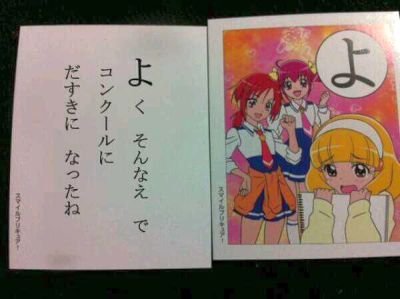 よく そんなえ で
コンクールに
だすきに なったね
スマイルプリキュア!
よ
スマイルプリキュア!